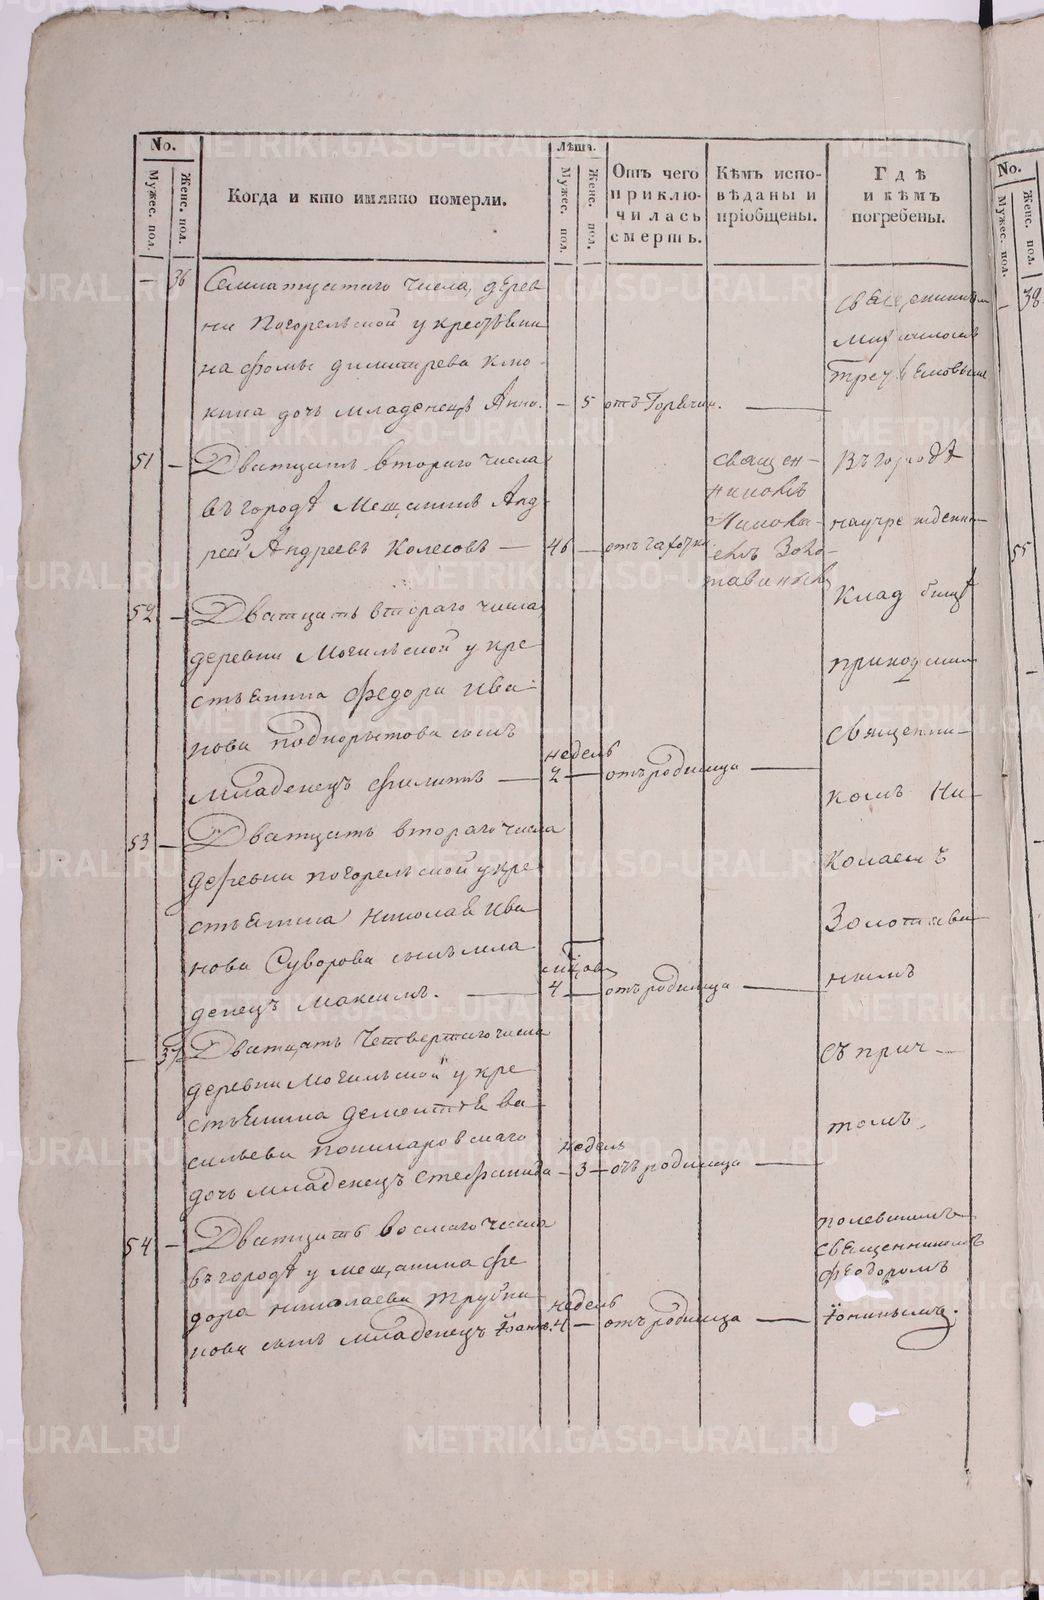 No.
Мужес. пол.
Женс. пол.
Когда и кто имянно померли.
Лѣта.
Мужес. пол.
Женс. пол.
Отъ чего
приклю-
чилась
смерть.
Кѣмъ испо-
вѣданы и
пріобщены.
Гдѣ
и кѣмъ
погребены.
— 36 Семнатцатаго числа, дерев
ни Погорельской у крестьяни
на Фомы Димитрева Клю-
кина дочь младенецъ Анна. — 5 отъ Горячки. —
священником
51 — Дватцать втораго числа
въ городѣ Мещанинъ Анд-
рей Андреевъ Колесовъ — 46 — отъ чахотки
священ-
никомъ
Никола-
емъ Золо-
тавинымъ
Въ городѣ
на учрежденно
кладбищѣ
приходским
священни-
комъ Ни-
колаемъ
Золотави
нымъ
съ прич-
томъ.
52 — Дватцать втораго числа
деревни Могильской у кре
стьянина Федора Ива-
нова Подкорытова сынъ
младенецъ Филиппъ — недель 2 — отъ родимца —
53 — Дватцать втораго числа
деревни Погорельской у кре
стьянина Николая Ива
нова Суворова сынъ мла
денецъ Максимъ. — 4 — отъ родимца —
— 37 Дватцать Четвертаго числа
деревни Могильской у кре
стьянина Дементья Ва
сильева Пономаровскаго
дочь младенецъ Стефанида — недель 3 — отъ родимца —
54 — Дватцать восмаго числа
въ городѣ у мещанина Фе
дора Николаева Трубни
кова сынъ младенецъ Іоаннъ. недель 4 — отъ родимца —
полевскимъ
священникомъ
Феодоромъ
Іонинымъ.
No.
Мужес. пол.
Женс. пол.
— 38
55
METRIKI.GASO-URAL.RU